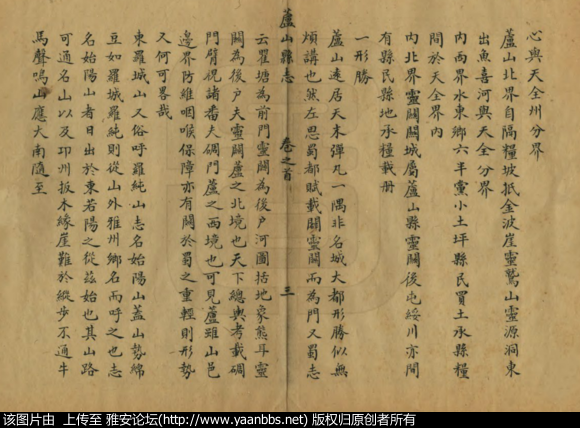 心與天全州分界
蘆山北界自隔糧坡抵金波崖靈鷲山靈源澗東
出魚喜河與天全分界
內西界水東鄉六年黨小土坪縣民買土承縣糧
間於天全界內
內北界靈關關城屬蘆山縣靈關後屯綏川亦間
有縣民縣地承糧載冊
一形勝
蘆山遠居天末彈丸一隅非名城大都形勝似無
煩講也然左思蜀都賦載關靈關而為門又蜀志
蘆山縣志
卷之首
三
云瞿塘為前門靈關為後户河圖括地象熊耳靈
關為後户夫靈關蘆之北境也天下總輿考載碉
門臂視諸番夫碉門蘆之西境也可見蘆雖山邑
邊界防維咽喉保障亦有關於蜀之重輕則形勢
又何可畧哉
東羅城山又俗呼羅純山志名始陽山蓋山勢綿
亘如羅城羅純則從山外雅州鄉名而呼之也志
名始陽山者日出於東若陽之從茲始也其山路
可通名山以及邛州扳木緣崖難於縱步不通牛
馬聲鳴山應大南隨至
该图片由 上传至 雅安论坛(http://www.yaanbbs.net) 版权归原创者所有